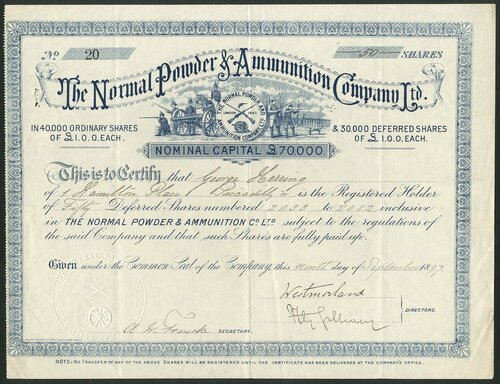 No 20 50 SHARES
The Normal Powder & Ammunition Company Ltd.
IN 40,000 ORDINARY SHARES OF £1.0.0. EACH.
THE NORMAL POWDER AND AMMUNITION COMPANY
& 30,000 DEFERRED SHARES OF £1.0.0. EACH.
NOMINAL CAPITAL £70,000.
This is to Certify that George Herring
of 1 Hamilton Place Piccadilly is the Registered Holder
of Fifty Deferred Shares numbered 2033 to 2082 inclusive
in THE NORMAL POWDER & AMMUNITION Co. LTD. subject to the regulations of
the said Company and that such Shares are fully paid up.
Given under the Common Seal of the Company, this ninth day of September 1897
Westmorland
DIRECTORS.
SECRETARY.
NOTE: NO TRANSFER OF ANY OF THE ABOVE SHARES WILL BE REGISTERED UNTIL THE CERTIFICATE HAS BEEN DELIVERED AT THE COMPANY'S OFFICE.